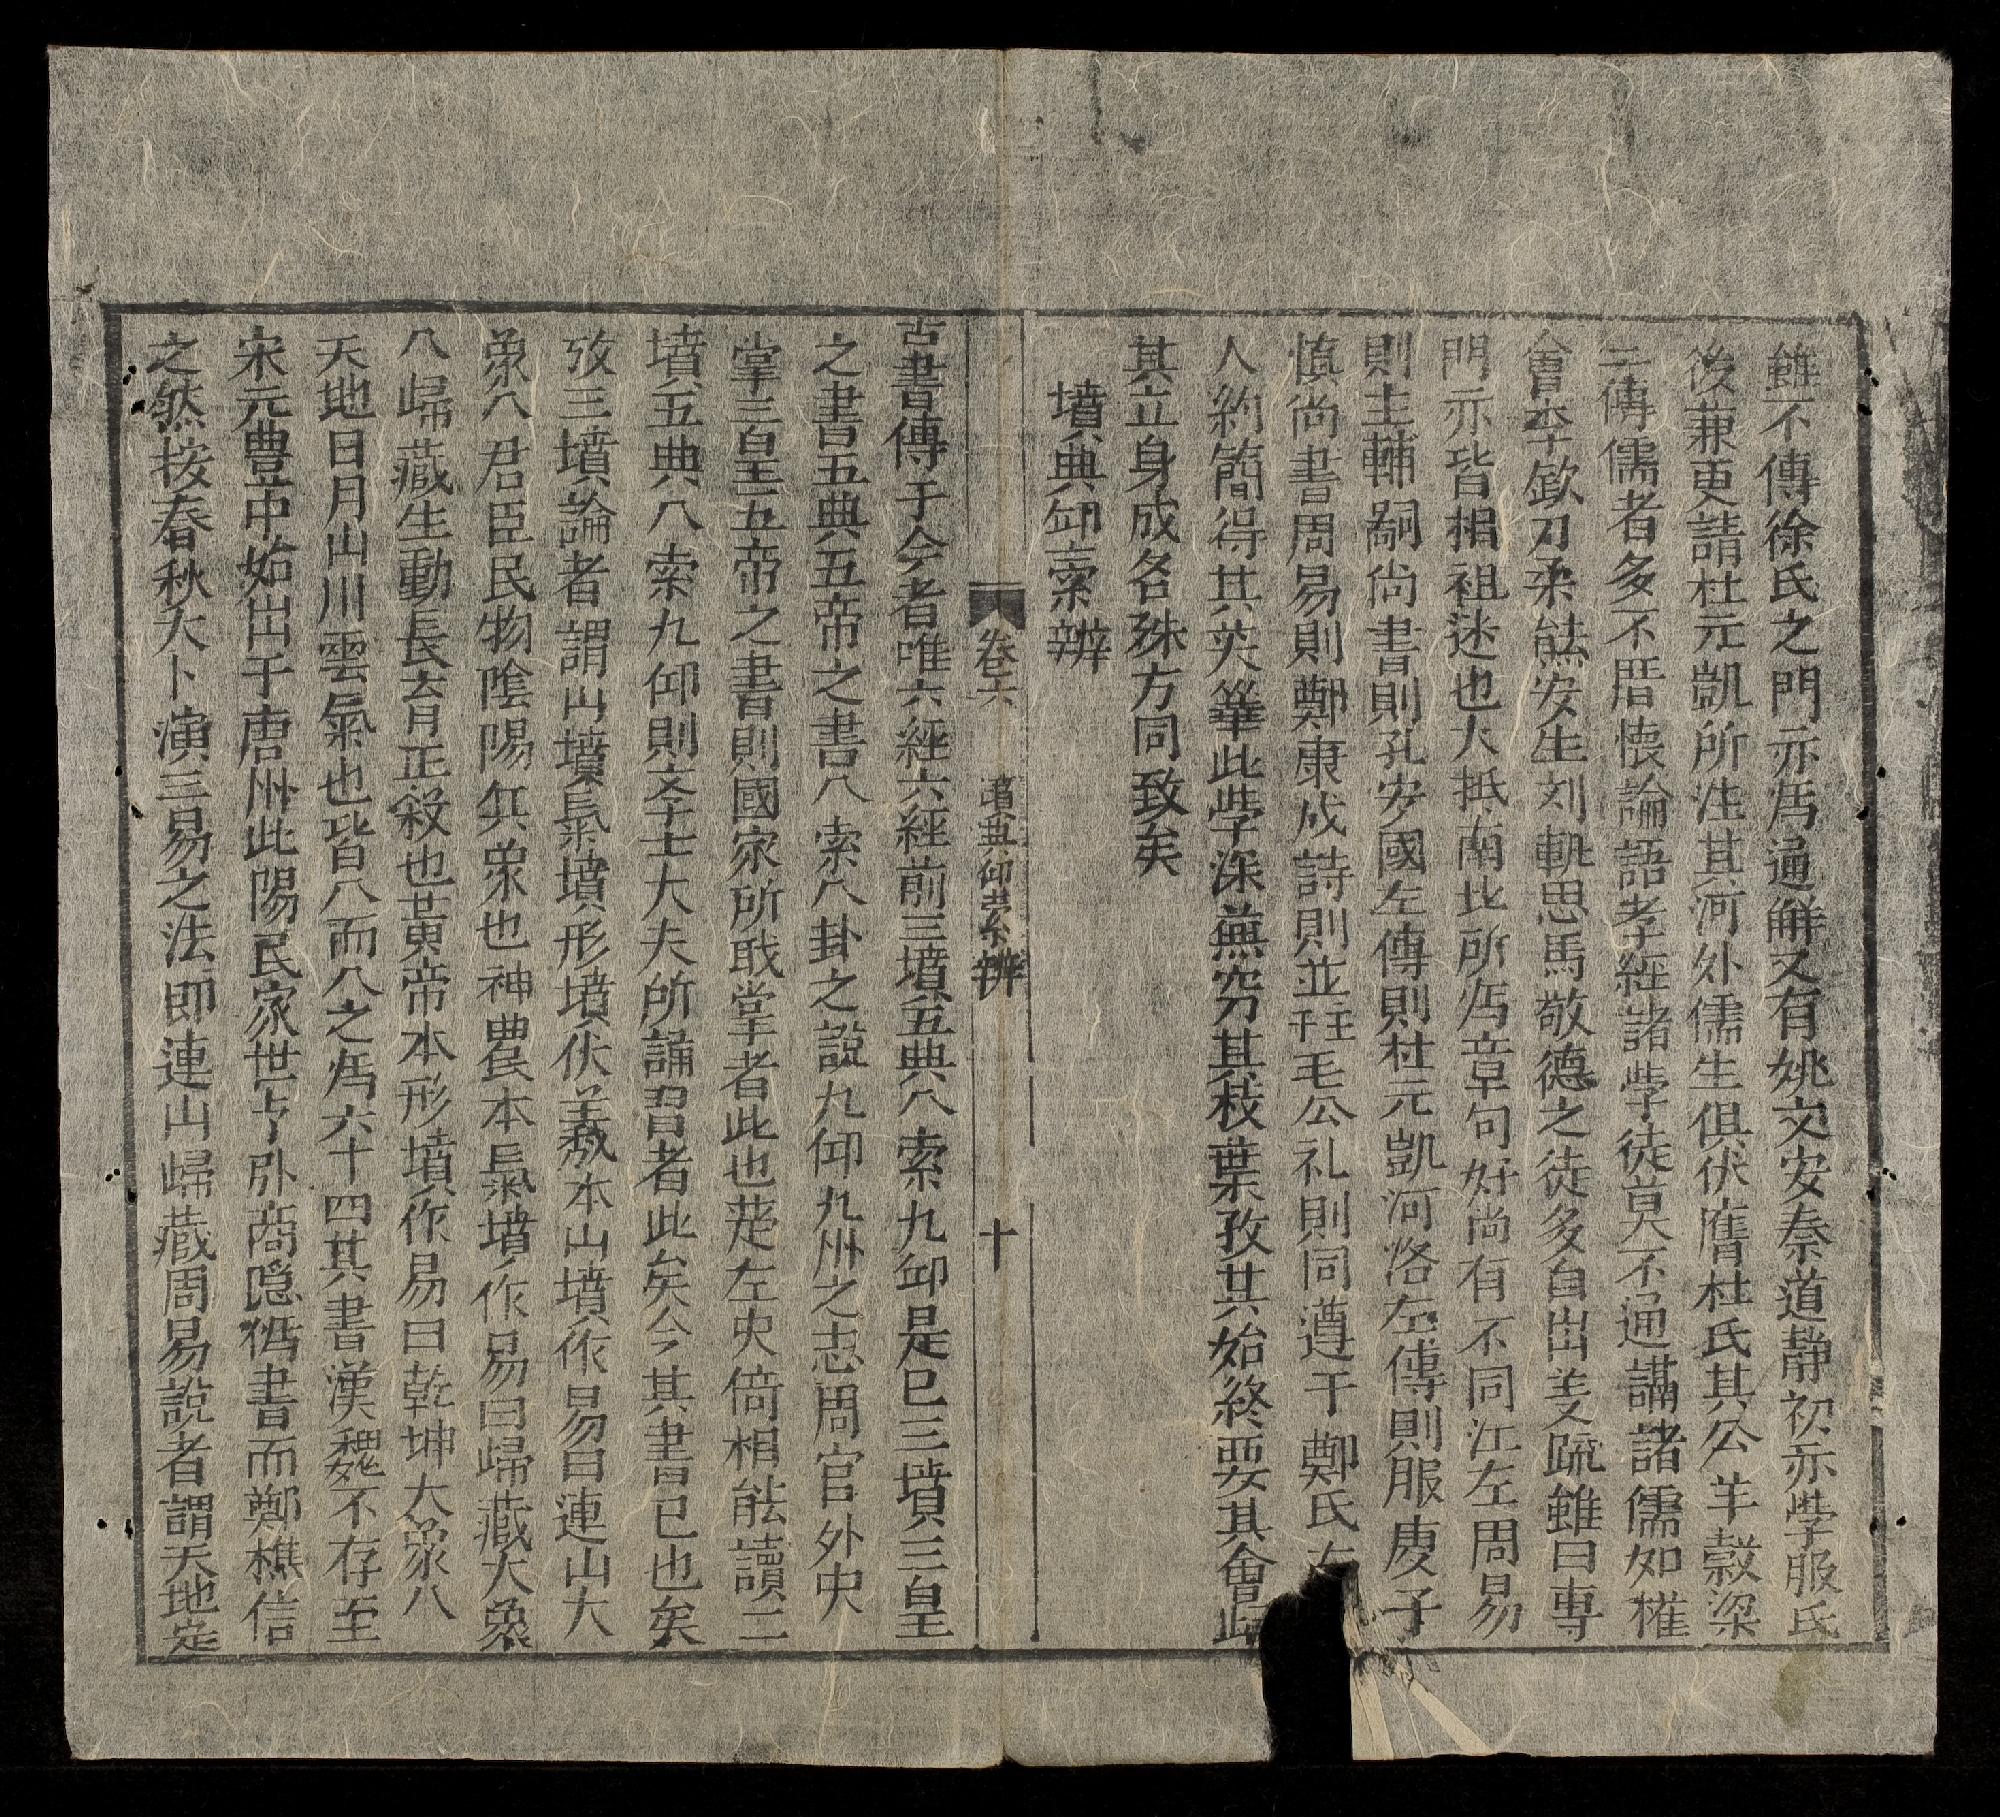 雖不傳徐氏之門亦爲通解又有姚文安秦道靜初亦學服氏
後兼更請杜元凱所注其河外儒生俱伏膺杜氏其公羊穀梁
二傳儒者多不厝懷論語孝經諸學徒莫不通講諸儒如權
會李欽刀柔熊安生刘軌思馬敬德之徒多自出義疏雖曰專
門亦皆相祖述也大抵南北所爲章句好尚有不同江左周易
則主輔嗣尚書則孔安國左傳則杜元凱河洛左傳則服虔子
慎尚書周易則鄭康成詩則並主毛公礼則同遵于鄭氏
人約簡得其英華此學深蕪窮其枝葉攷其始終要其會歸
其立身成名殊方同致矣
墳典丘索辨
卷六 墳典丘索辨 十
古書傳于今者唯六經六經前三墳五典八索九丘是已三墳三皇
之書五典五帝之書八索八卦之說九丘九州之志周官外史
掌三皇五帝之書則國家所職掌者此也楚左史倚相能讀三
墳五典八索九丘則文士大夫所誦習者此矣今其書已也矣
攷三墳論者謂山墳氣墳形墳伏羲本山墳作易曰連山大
象八君臣民物陰陽兵象也神農本氣墳作易曰歸藏大象
八歸藏生動長育正殺也黃帝本形墳作易曰乾坤大象八
天地日月山川雲氣也皆八而八之爲六十四其書漢魏不存至
宋元豊中始出于唐州此陽民家世亏卟商隠猶書而鄭樵信
之然按春秋大卜演三易之法即連山歸藏周易說者謂天地定